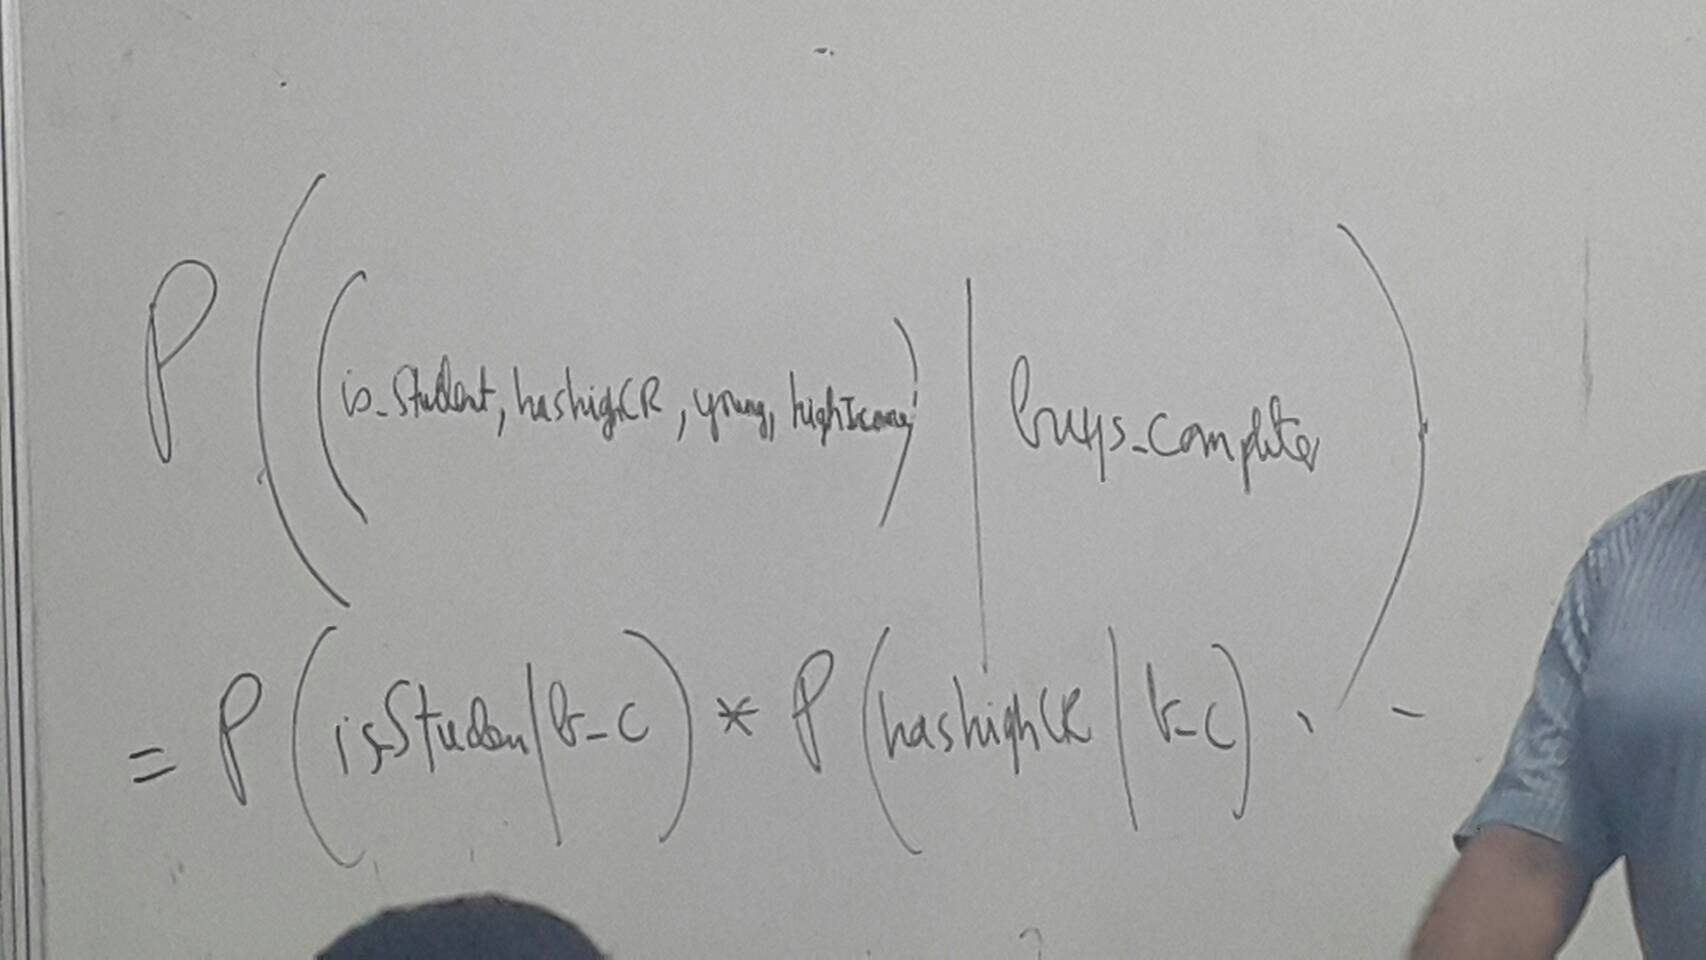 P((is_student, hashighCR, young, highIcome) | buys_computer)
= P(is_Studen|b_c) * P(hashighCR | b_c) . -